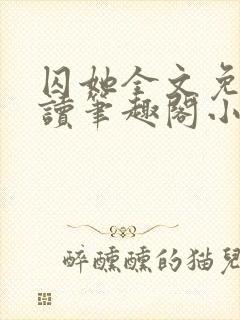 囚她全文免
讀筆趣閣小
醉醺醺的猫兒